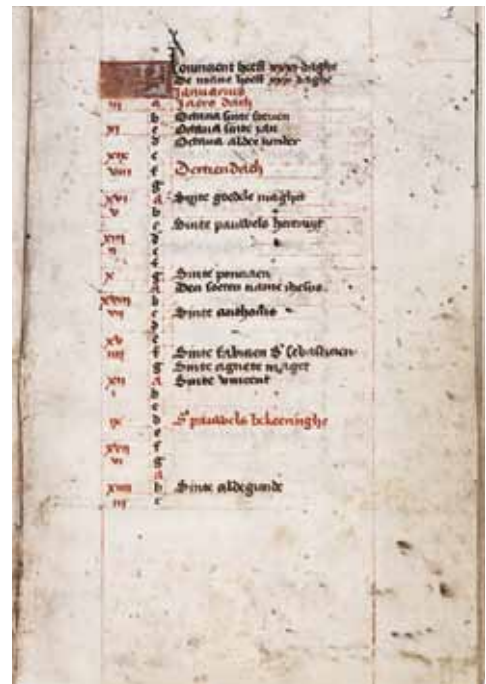 heeft xxxi daghe
De mane heeft xxx daghe
Januarius
iii a Jaers dach
b Octava sinte steven
xi c Octava sinte jan
d Octava alder kinder
xix e
viii f Dertien dach
g
xvi a Sinte goedele maghet
v b
c Sinte pauwels heremijt
xiii d
ii e
f
x g Sinte poncien
a Den soeten name ihesus
xviii b
vii c Sinte anthonis
d
xv e
iiii f Sinte fabiaen S sebastiaen
g Sinte agnete maget
xii a Sinte vincent
i b
c
ix d S pauwels bekeeringhe
e
xvii f
vi g
a
xiiii b Sinte aldegunde
iii c